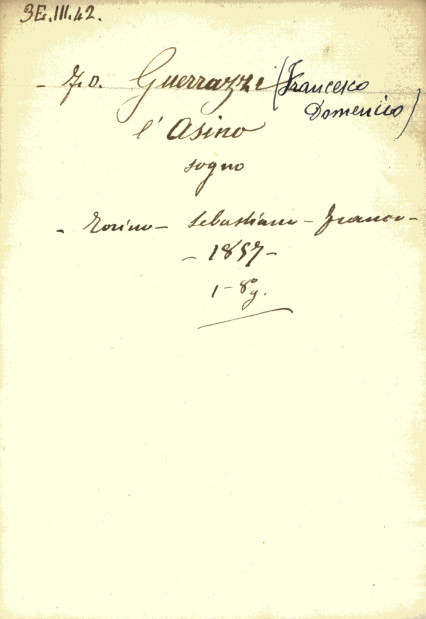 3E.III.42.
- F.D. Guerrazzi (Francesco
Domenico)
l'Asino
sogno
- Torino - Sebastiano - Franco -
- 1857 -
1 - 8º g.